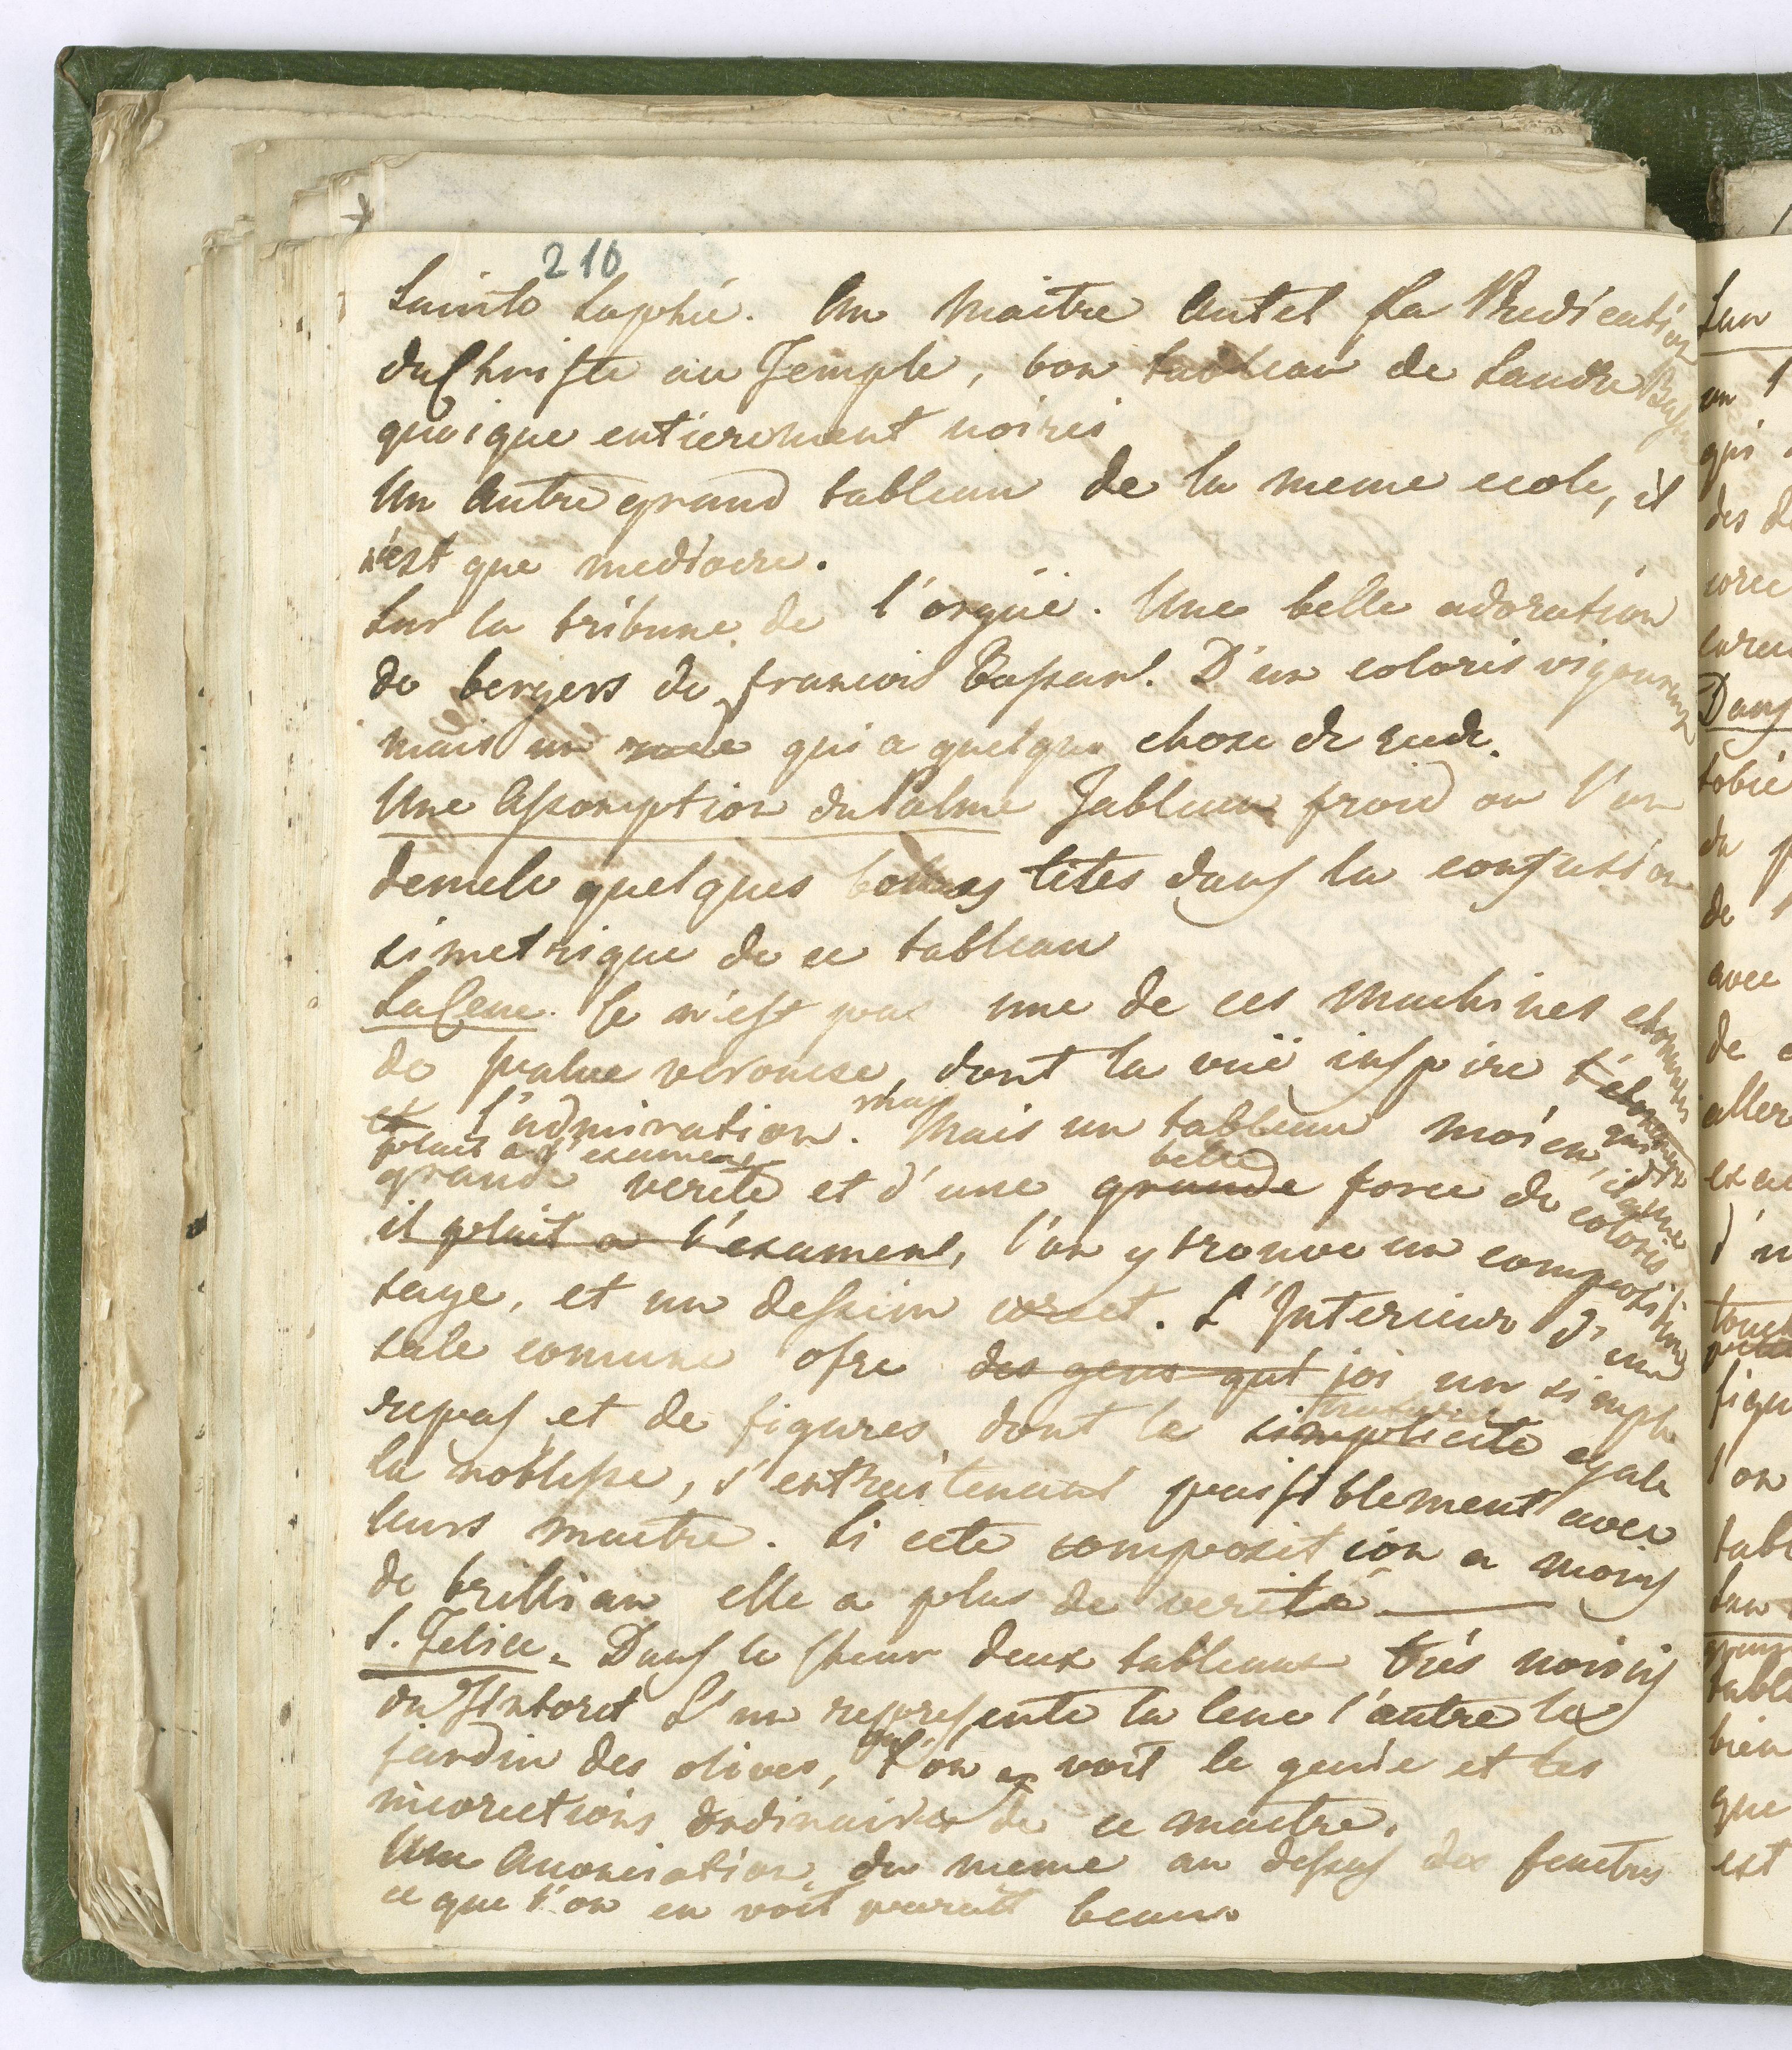 210
Sainte Sophie. Au Maitre Autel La Predication
du Christe au Temple, bon tableau de Landre
quoique entierement noirci
Un Autre grand tableau de la meme ecole, il
n'est que mediocre.
Sur la tribune de l'orgüe. Une belle adoration
de bergers de francois Bassan. D'un coloris vigoureux
mais un rude qui a quelque chose de rude.
Une Assomption du Palme Tableau froid ou l'on
demele quelques bonnes têtes dans la confusion
simetrique de ce tableau
La Cene. Ce n'est pas une de ces Machines etonnantes
de paul veronese, dont la vuë inspire l'etonnement
et l'admiration. Mais un tableau moien, qui
plait a l'examen
grande verite et d'une grande belle force de coloris
il plait a l'examen, l'on y trouve un composition
sage, et un dessein corect. L'Interieur d'une
sale comune ofre des gens qui ici un simple
repas et de figures dont le simplicité egale
la noblesse, s'entretenant paisiblement avec
leurs maitre. Si cete composition a moins
de brillian elle a plus de verité.
S. Felice. Dans le Cheur deux tableaux très noircis
du Tintoret L'un represente la Cene l'autre le
jardin des olives, l'on y voit le genie et les
incorections ordinaires de ce maitre.
Une Anonciation du meme au dessus des fenetres
ce que l'on en voit parait beau.
Sur
un
qui
des
Dans
tobie
du
de
avec
de
aller
d'u
figu
l'on
tabl
Sur
tabl
bien
que
est